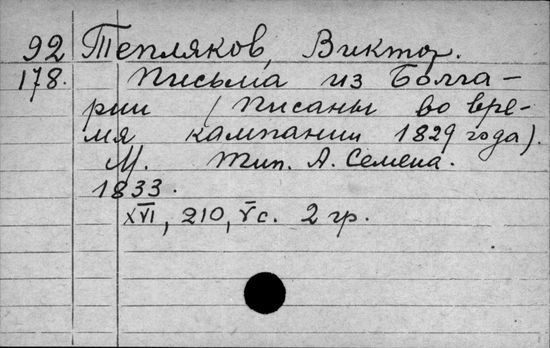 92 Тепляков, Виктор.
178. Письма из Болга-
рии (Писаны во вре-
мя кампании 1829 года).
М. Тип. А. Семена.
1833.
XVI, 210, V с. 2 гр.